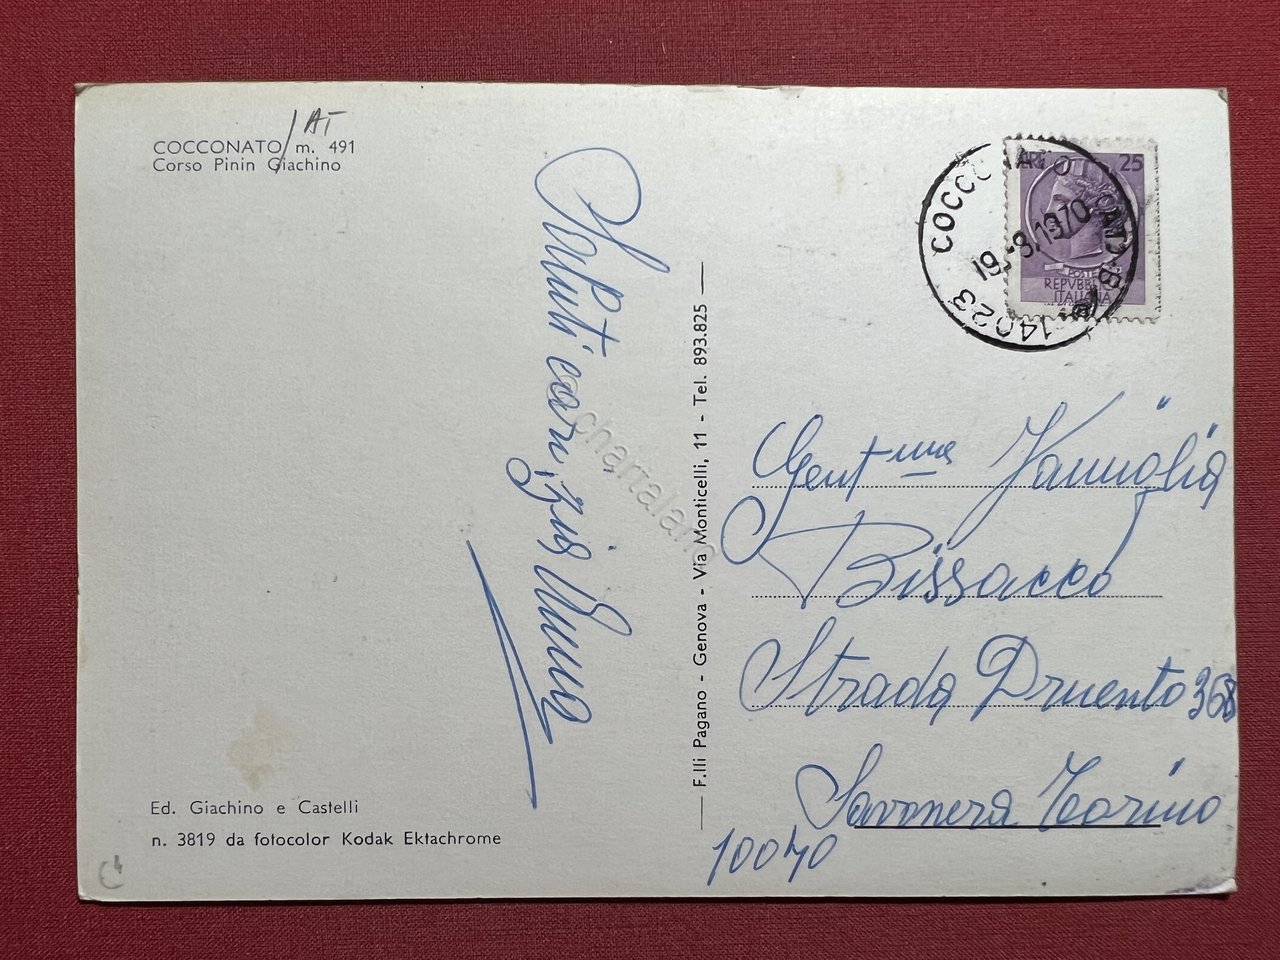 COCCONATO m. 491
AT
Corso Pinin Giachino
Saluti cari, zia Anna
Ed. Giachino e Castelli
n. 3819 da fotocolor Kodak Ektachrome
F.lli Pagano - Genova - Via Monticelli, 11 - Tel. 893.825
25
REPVBBLICA
ITALIANA
14023 COCCONATO
19.-8.1970
Gent.me Famiglia
Bissacco
Strada Druento 368
Savonera Torino
10040
chartaland